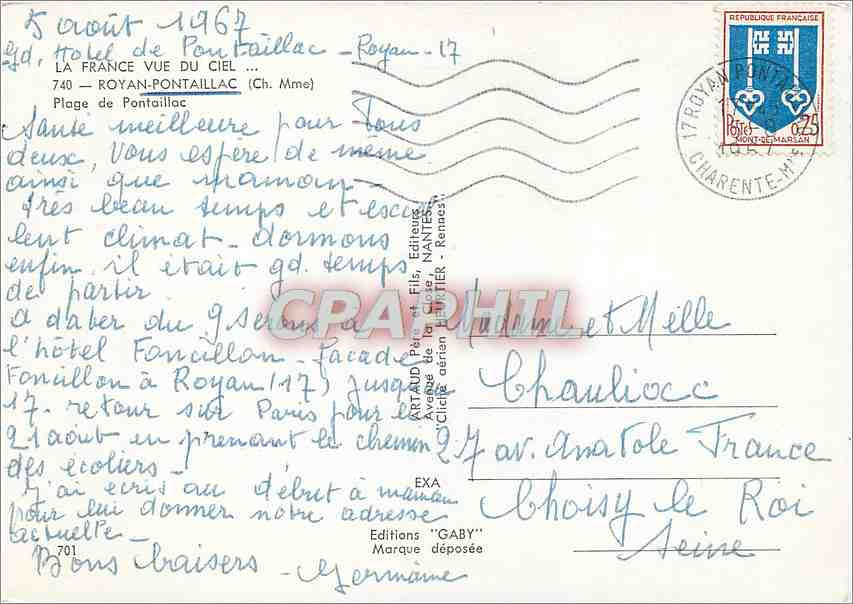 5 août 1967
gd, Hotel de Pontaillac - Royan - 17
LA FRANCE VUE DU CIEL ...
740 — ROYAN-PONTAILLAC (Ch. Mme)
Plage de Pontaillac
Santé meilleure pour Tous
deux, Vous espère de même
ainsi que maman -
Très beau temps et excel
lent climat - dormons
enfin, il était gd. temps
de partir
A dater du 9 serons à
l'hôtel Foncillon - façade
Foncillon à Royan (17) jusqu'au
17 - retour sur Paris pour le
21 aout en prenant le chemin
des écoliers -
J'ai ecris au début à maman
pour lui donner notre adresse
actuelle -
701
Bons baisers - Germaine
REPUBLIQUE FRANÇAISE
POSTES 0,25
MONT-DE-MARSAN
17 ROYAN PONTA
1967
CHARENTE-Mme
ARTAUD Père et Fils, Editeurs
Avenue de la Close, NANTES
"Cliché aérien HEURTIER - Rennes"
CPAPHIL
Madame et Melle
Chauliocc
27 av. Anatole France
Choisy le Roi
Seine
EXA
Editions "GABY"
Marque déposée